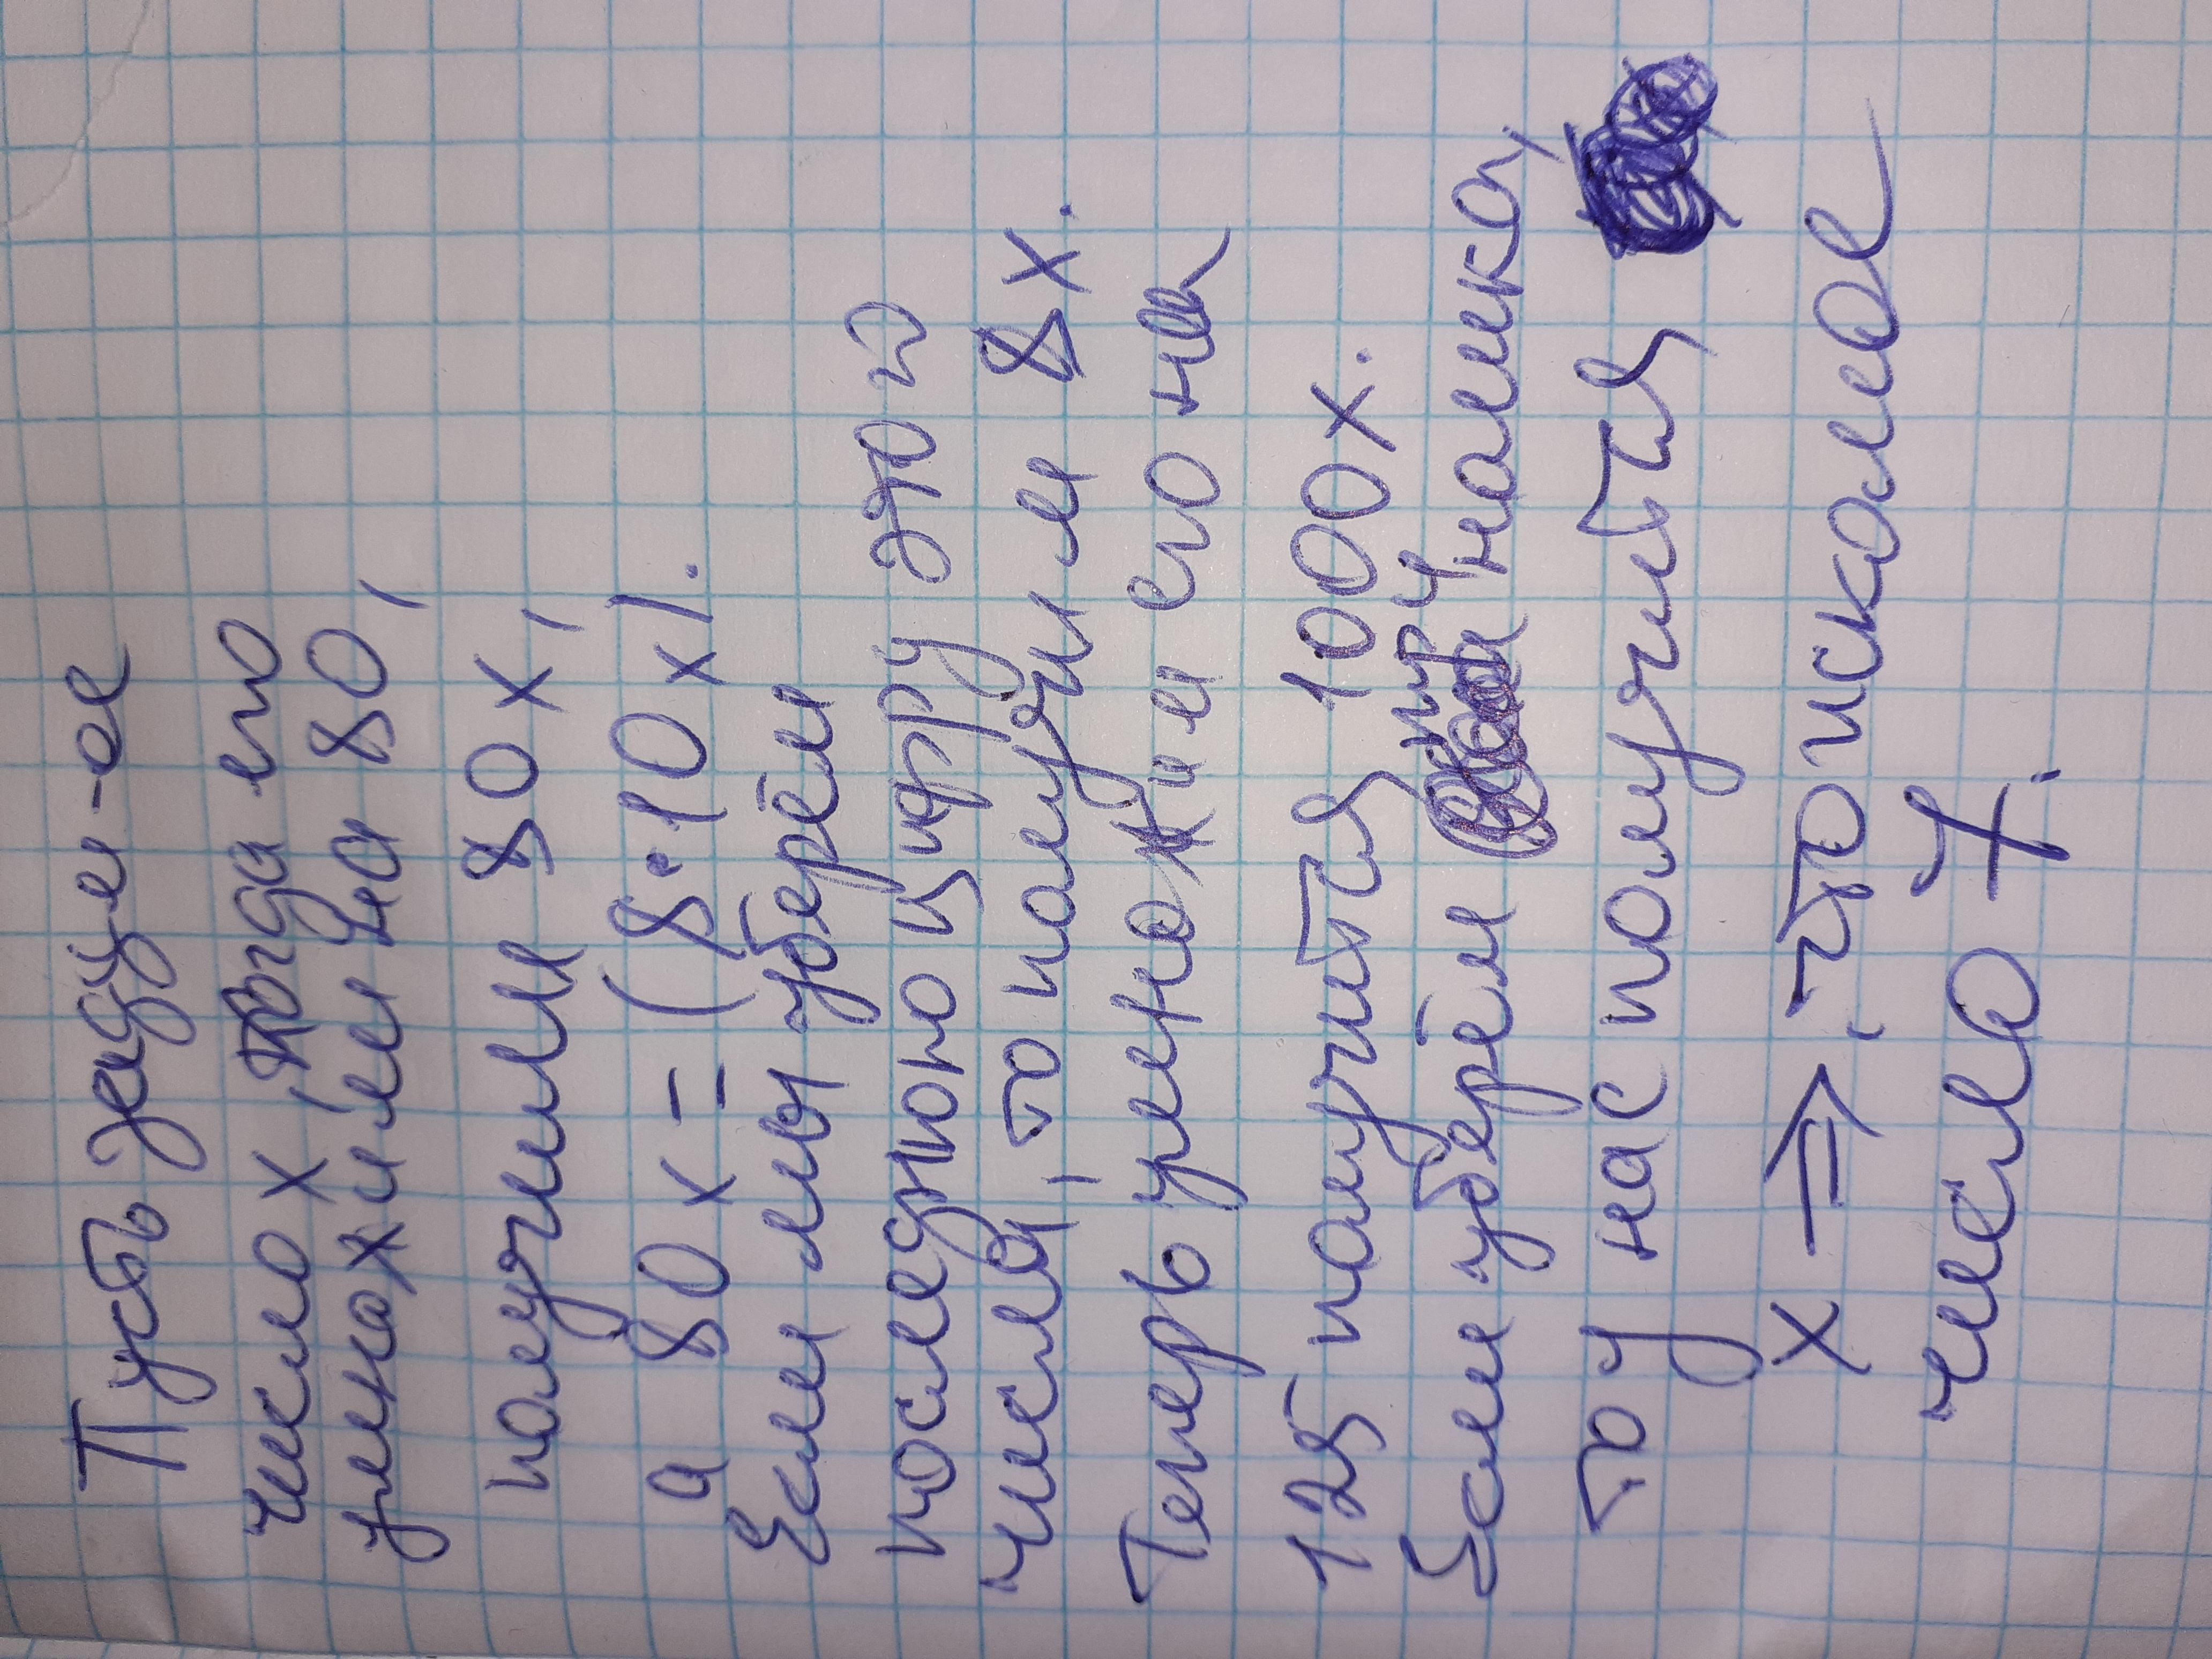 Пусть задум-ое
число x, тогда его
умножили на 80,
получили 80x,
а 80x = (8·10x).
Если мы уберём
последнюю цифру этого
числа, то получим 8x.
Теперь умножим его на
125 получится 1000x.
Если уберём три нолика,
то у нас получится
x => что искомое
число 7.